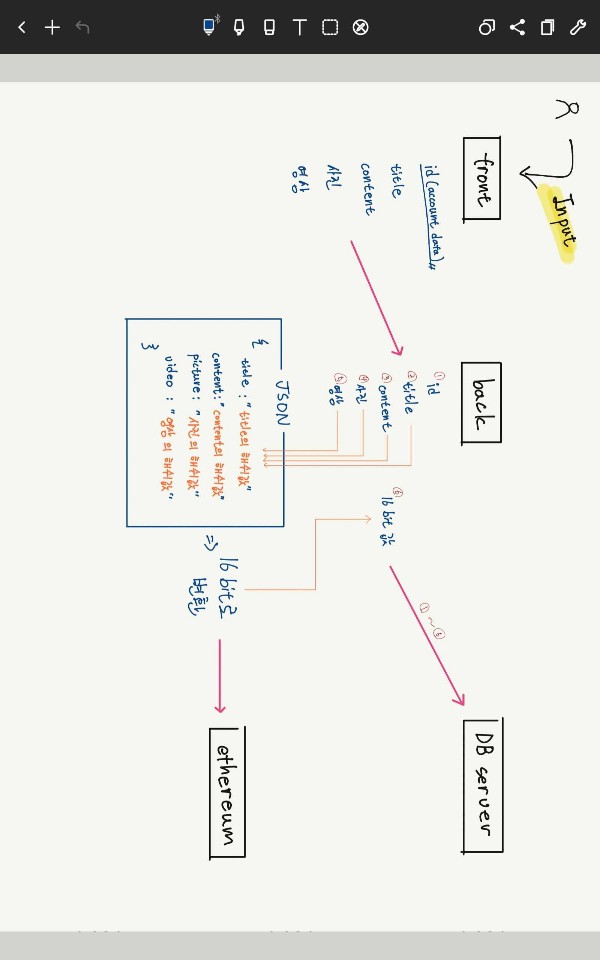 Input
front
back
DB server
id (account data)
title
content
사진
영상
① id
② title
③ content
④ 사진
⑤ 영상
⑥ 16 bit 값
① ~ ⑥
JSON
{
title : "title의 해쉬값"
content : "content의 해쉬값"
picture : "사진의 해쉬값"
video : "영상의 해쉬값"
}
=> 16 bit로
변환
ethereum